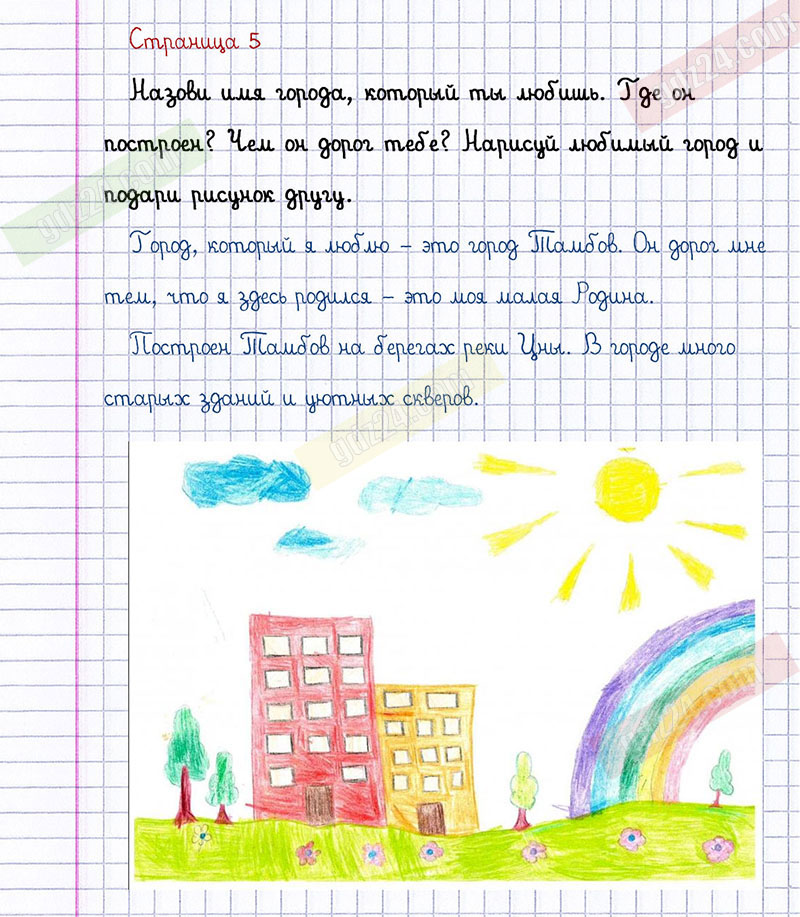 Страница 5
Назови имя города, который ты любишь. Где он
построен? Чем он дорог тебе? Нарисуй любимый город и
подари рисунок другу.
Город, который я люблю – это город Тамбов. Он дорог мне
тем, что я здесь родился – это моя малая Родина.
Построен Тамбов на берегах реки Цны. В городе много
старых зданий и уютных скверов.
gdz24.com
gdz24.com
gdz24.com
gdz24.com